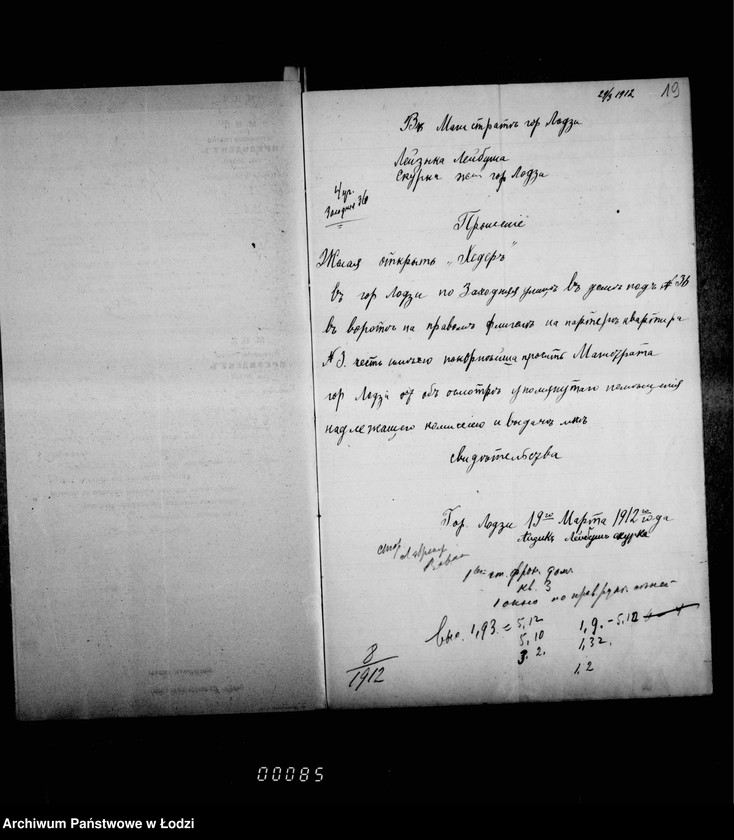 29/3 1912
19
Въ Магистратъ гор Лодзи
Лейзика Лейбуша
Скурка жит гор Лодзи
4 уч.
Заходня 36
Прошеніе
Желая открыть „Хедеръ"
въ гор Лодзи по Заходняя улицѣ въ домѣ подъ № 36
въ воротѣ на правомъ флигелѣ на партерѣ квартира
№ 3. честь имѣю покорнѣйша просить Магистрата
гор Лодзи объ осмотрѣ упомянутаго помѣщенія
надлежащего комиссію и выдачѣ мнѣ
свидѣтельства
Гор. Лодзи 19го Марта 1912го года
Лейбушъ Скурка
1 эт. фрон. дом.
кв. 3
1 окно по
выс. 1,93. = 5,12
5,10
3. 2.
1,9. - 5,12
1,32.
1,2
8/1912
00085
Archiwum Państwowe w Łodzi